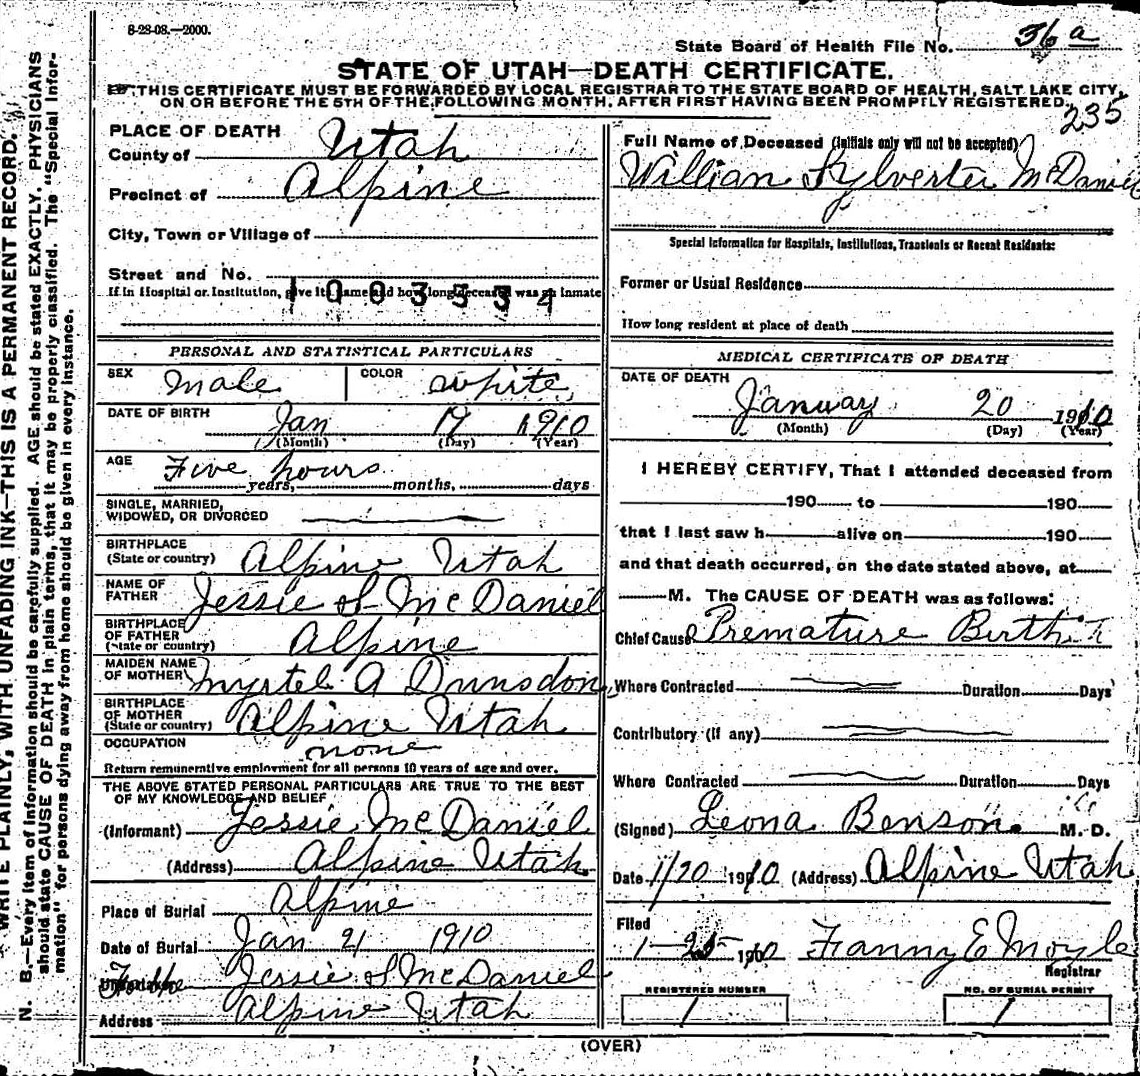 8-28-08.—2000.
State Board of Health File No. 36 a
STATE OF UTAH—DEATH CERTIFICATE.
THIS CERTIFICATE MUST BE FORWARDED BY LOCAL REGISTRAR TO THE STATE BOARD OF HEALTH, SALT LAKE CITY,
ON OR BEFORE THE 5TH OF THE FOLLOWING MONTH, AFTER FIRST HAVING BEEN PROMPTLY REGISTERED.
235
PLACE OF DEATH
County of Utah
Precinct of Alpine
City, Town or Village of
Street and No.
If in Hospital or Institution, give its name and how long deceased was an inmate
1003534
PERSONAL AND STATISTICAL PARTICULARS
SEX Male COLOR white
DATE OF BIRTH Jan 19 1910
(Month) (Day) (Year)
AGE Five hours
years, months, days
SINGLE, MARRIED,
WIDOWED, OR DIVORCED
BIRTHPLACE
(State or country) Alpine Utah
NAME OF
FATHER Jessie S McDaniel
BIRTHPLACE
OF FATHER
(State or country) Alpine
MAIDEN NAME
OF MOTHER Myrtel A Dunsdon
BIRTHPLACE
OF MOTHER
(State or country) Alpine Utah
OCCUPATION none
Return remunerative employment for all persons 10 years of age and over.
THE ABOVE STATED PERSONAL PARTICULARS ARE TRUE TO THE BEST
OF MY KNOWLEDGE AND BELIEF
(Informant) Jessie McDaniel
(Address) Alpine Utah
Place of Burial Alpine
Date of Burial Jan 21 1910
Undertaker Jessie S McDaniel
Address Alpine Utah
Full Name of Deceased (Initials only will not be accepted)
Willian Sylvester McDaniel
Special Information for Hospitals, Institutions, Transients or Recent Residents:
Former or Usual Residence
How long resident at place of death
MEDICAL CERTIFICATE OF DEATH
DATE OF DEATH
January 20 1910
(Month) (Day) (Year)
I HEREBY CERTIFY, That I attended deceased from
190 to 190
that I last saw h alive on 190
and that death occurred, on the date stated above, at
M. The CAUSE OF DEATH was as follows:
Chief Cause Premature Birth
Where Contracted Duration Days
Contributory (if any)
Where Contracted Duration Days
(Signed) Leona Benson. M. D.
Date 1/20 1910 (Address) Alpine Utah
Filed
1-25-1910 Fanny E Moyle
Registrar
REGISTERED NUMBER NO. OF BURIAL PERMIT
1 1
(OVER)
WRITE PLAINLY, WITH UNFADING INK—THIS IS A PERMANENT RECORD.
N. B.—Every item of information should be carefully supplied. AGE should be stated EXACTLY. PHYSICIANS
should state CAUSE OF DEATH in plain terms, that it may be properly classified. The "Special Infor-
mation" for persons dying away from home should be given in every instance.